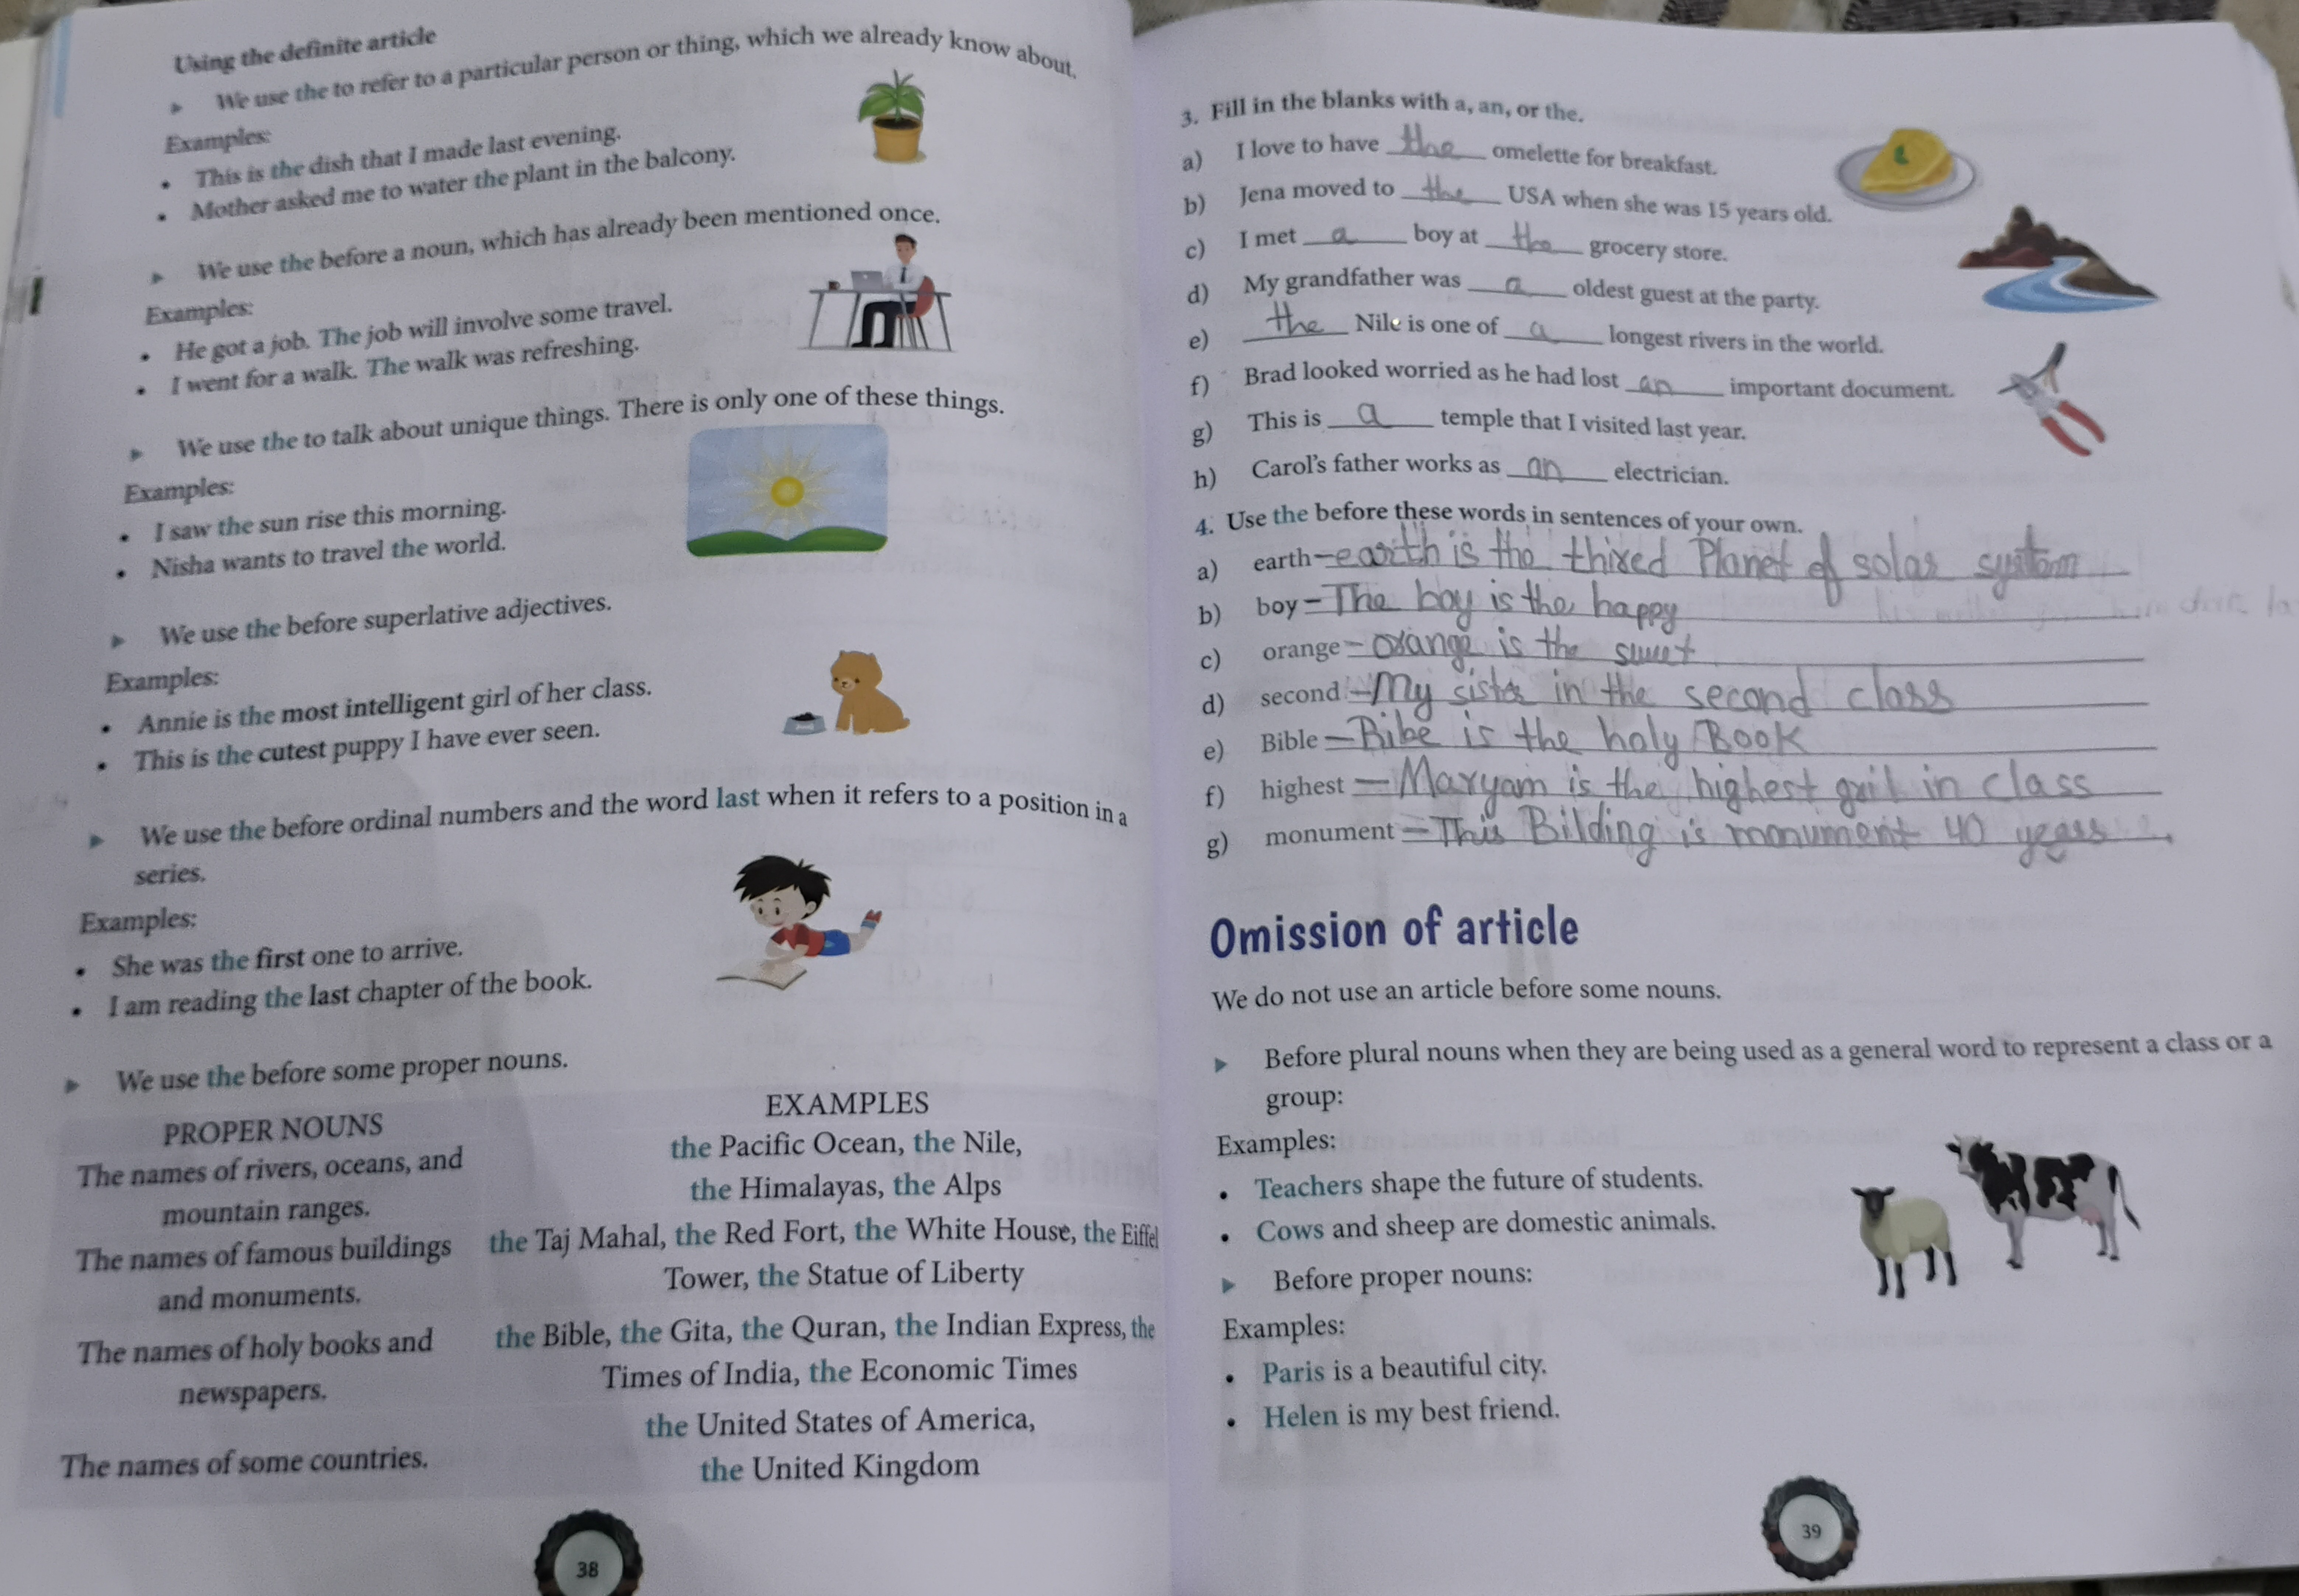 Using the definite article
▶ We use the to refer to a particular person or thing, which we already know about.
Examples:
• This is the dish that I made last evening.
• Mother asked me to water the plant in the balcony.
▶ We use the before a noun, which has already been mentioned once.
Examples:
• He got a job. The job will involve some travel.
• I went for a walk. The walk was refreshing.
▶ We use the to talk about unique things. There is only one of these things.
Examples:
• I saw the sun rise this morning.
• Nisha wants to travel the world.
▶ We use the before superlative adjectives.
Examples:
• Annie is the most intelligent girl of her class.
• This is the cutest puppy I have ever seen.
▶ We use the before ordinal numbers and the word last when it refers to a position in a
series.
Examples:
• She was the first one to arrive.
• I am reading the last chapter of the book.
▶ We use the before some proper nouns.
PROPER NOUNS EXAMPLES
The names of rivers, oceans, and
mountain ranges.
the Pacific Ocean, the Nile,
the Himalayas, the Alps
The names of famous buildings
and monuments.
the Taj Mahal, the Red Fort, the White House, the Eiffel
Tower, the Statue of Liberty
The names of holy books and
newspapers.
the Bible, the Gita, the Quran, the Indian Express, the
Times of India, the Economic Times
The names of some countries.
the United States of America,
the United Kingdom
38
3. Fill in the blanks with a, an, or the.
a) I love to have the omelette for breakfast.
b) Jena moved to the USA when she was 15 years old.
c) I met a boy at the grocery store.
d) My grandfather was a oldest guest at the party.
e) the Nile is one of a longest rivers in the world.
f) Brad looked worried as he had lost an important document.
g) This is a temple that I visited last year.
h) Carol's father works as an electrician.
4. Use the before these words in sentences of your own.
a) earth - earth is the thired Planet of solar system
b) boy - The boy is the happy
c) orange - orange is the sweet
d) second - My sister in the second class
e) Bible - Bibe is the holy Book
f) highest - Maryam is the highest gril in class
g) monument - This Bilding is monument 40 years
Omission of article
We do not use an article before some nouns.
▶ Before plural nouns when they are being used as a general word to represent a class or a
group:
Examples:
• Teachers shape the future of students.
• Cows and sheep are domestic animals.
▶ Before proper nouns:
Examples:
• Paris is a beautiful city.
• Helen is my best friend.
39